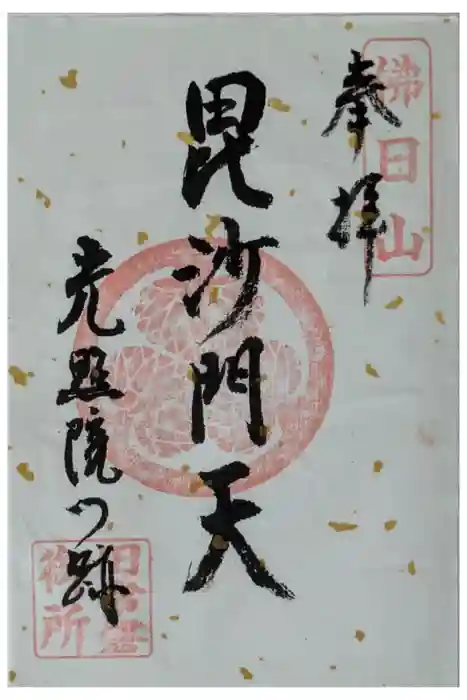 佛日山
奉拝
毘沙門天
光照院門跡
御所